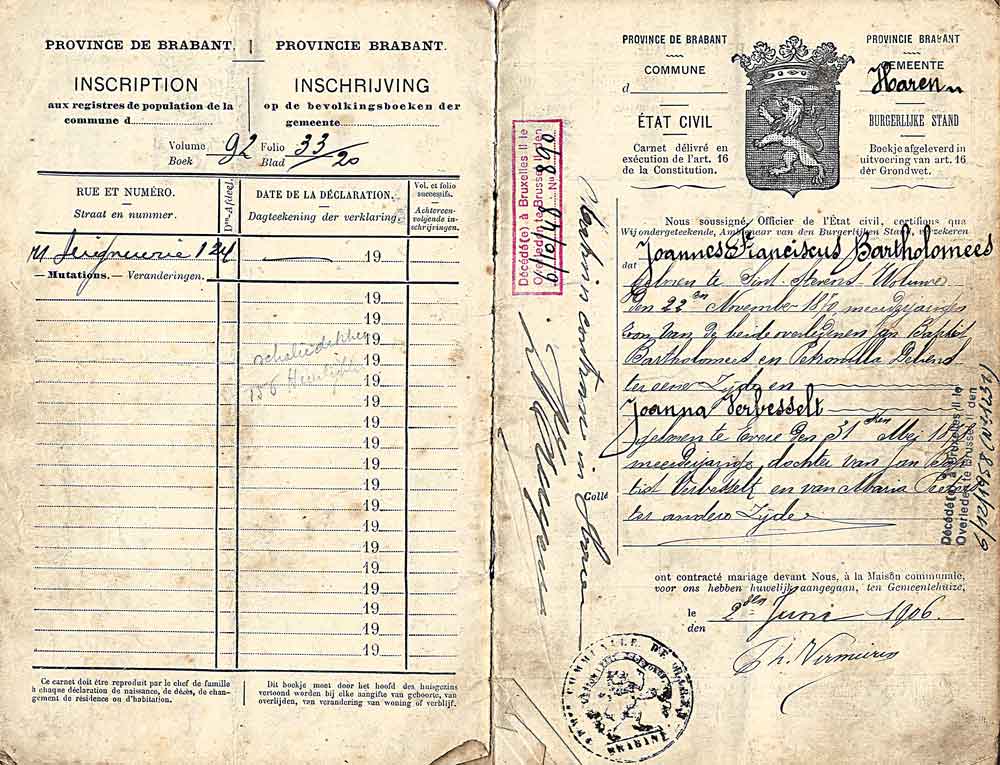 PROVINCE DE BRABANT.
INSCRIPTION
aux registres de population de la
commune d
PROVINCIE BRABANT.
INSCHRIJVING
op de bevolkingsboeken der
gemeente
Volume Boek 92 Folio Blad 33/20
RUE ET NUMÉRO.
Straat en nummer.
Dm-Afdeel.
DATE DE LA DÉCLARATION.
Dagteekening der verklaring
Vol. et folio
successifs.
Achtereen-
volgende in-
schrijvingen.
Seigneurie 124
19
— Mutations. — Veranderingen.
19
19
19
19
19
19
19
19
19
19
19
19
19
19
19
19
19
Ce carnet doit être reproduit par le chef de famille
à chaque déclaration de naissance, de décès, de chan-
gement de résidence ou d'habitation.
Dit boekje moet door het hoofd des huisgezins
vertoond worden bij elke aangifte van geboorte, van
overlijden, van verandering van woning of verblijf.
Décédé(e) à Bruxelles II le
Overleden te Brussel II den
No 890
Collé
PROVINCE DE BRABANT
COMMUNE
d
ÉTAT CIVIL
Carnet délivré en
exécution de l'art. 16
de la Constitution.
PROVINCIE BRABANT
GEMEENTE
Haren
BURGERLIJKE STAND
Boekje afgeleverd in
uitvoering van art. 16
dèr Grondwet.
Nous soussigné, Officier de l'État civil, certifions que
Wij ondergeteekende, Ambtenaar van den Burgerlijken Stand, verzekeren
dat Joannes Franciscus Bartholomees
geboren te Sint Stevens-Woluwe
den 22en November meerderjarige
zoon van de beide overledenen Jan Baptist
Bartholomees en Petronilla
ter eene Zijde en
Joanna Verbesselt
geboren te Evere den 31sten Mei
meerderjarige dochter van Jan Bap-
tist Verbesselt en van Maria
ter andere Zijde
Décédé(e) à Bruxelles II le
Overleden te Brussel II den
ont contracté mariage devant Nous, à la Maison communale,
voor ons hebben huwelijk aangegaan, ten Gemeentehuize,
le
den 2den Juni 1906.
BRABANT